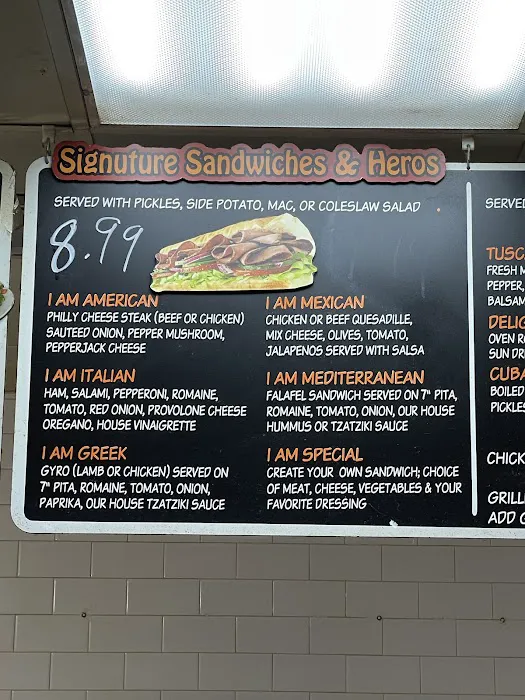 Signuture Sandwiches & Heros
SERVED WITH PICKLES, SIDE POTATO, MAC, OR COLESLAW SALAD
8.99
I AM AMERICAN
PHILLY CHEESE STEAK (BEEF OR CHICKEN)
SAUTEED ONION, PEPPER MUSHROOM,
PEPPERJACK CHEESE
I AM ITALIAN
HAM, SALAMI, PEPPERONI, ROMAINE,
TOMATO, RED ONION, PROVOLONE CHEESE
OREGANO, HOUSE VINAIGRETTE
I AM GREEK
GYRO (LAMB OR CHICKEN) SERVED ON
7" PITA, ROMAINE, TOMATO, ONION,
PAPRIKA, OUR HOUSE TZATZIKI SAUCE
I AM MEXICAN
CHICKEN OR BEEF QUESADILLE,
MIX CHEESE, OLIVES, TOMATO,
JALAPENOS SERVED WITH SALSA
I AM MEDITERRANEAN
FALAFEL SANDWICH SERVED ON 7" PITA,
ROMAINE, TOMATO, ONION, OUR HOUSE
HUMMUS OR TZATZIKI SAUCE
I AM SPECIAL
CREATE YOUR OWN SANDWICH; CHOICE
OF MEAT, CHEESE, VEGETABLES & YOUR
FAVORITE DRESSING
SERVED
TUSC
FRESH M
PEPPER,
BALSAM
DELIG
OVEN R
SUN DR
CUBA
BOILED
PICKLES
CHICK
GRILL
ADD C